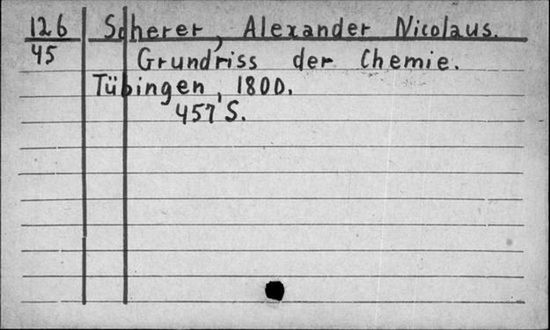 126 Scherer, Alexander Nicolaus.
45 Grundriss der Chemie.
Tübingen, 1800.
457 S.